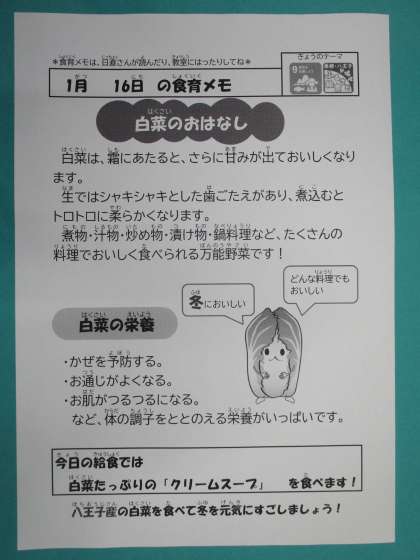 ＊食育メモは、日直さんが読んだり、教室にはったりしてね＊
きょうのテーマ
1月 16日 の食育メモ
白菜のおはなし
白菜は、霜にあたると、さらに甘みが出ておいしくなり
ます。
生ではシャキシャキとした歯ごたえがあり、煮込むと
トロトロに柔らかくなります。
煮物・汁物・炒め物・漬け物・鍋料理など、たくさんの
料理でおいしく食べられる万能野菜です！
冬においしい
どんな料理でも
おいしい
白菜の栄養
・かぜを予防する。
・お通じがよくなる。
・お肌がつるつるになる。
など、体の調子をととのえる栄養がいっぱいです。
今日の給食では
白菜たっぷりの「クリームスープ」 を食べます！
八王子産の白菜を食べて冬を元気にすごしましょう！